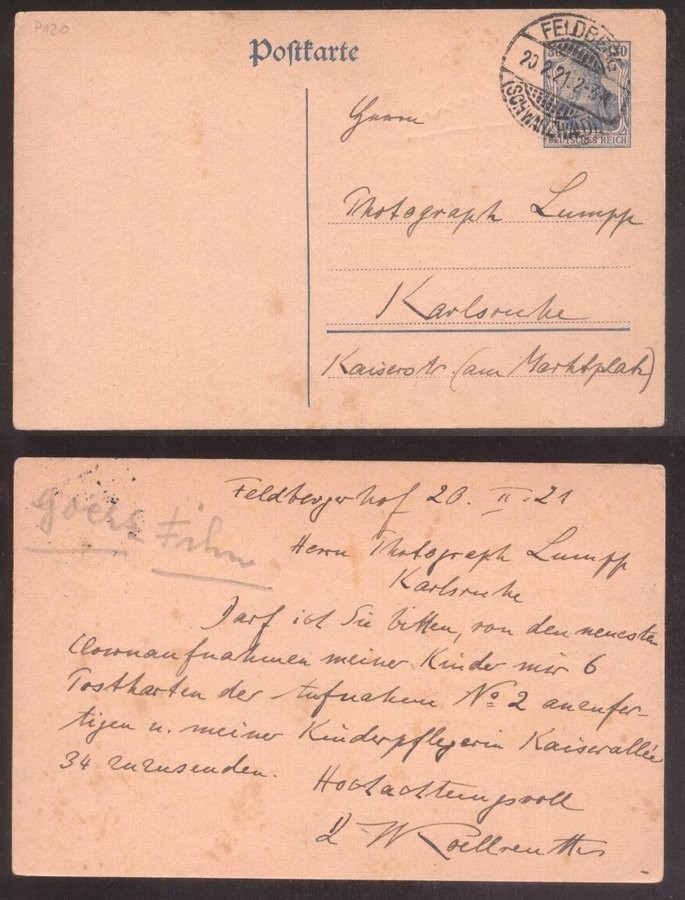 P120
Postkarte
FELDBERG
20.2.21.2-3N
(SCHWARZWALD)
30 30
DEUTSCHES REICH
Herrn
Photograph Lumpp
Karlsruhe
Kaiserstr (am Marktplatz)
Goerz Film
Feldbergerhof 20. II. 21
Herrn Photograph Lumpp
Karlsruhe
Darf ich Sie bitten, von den neuesten
Clownaufnahmen meiner Kinder mir 6
Postkarten der Aufnahme No 2 anzufer-
tigen u. meiner Kinderpflegerin Kaiserallée
34 zuzusenden.
Hochachtungsvoll